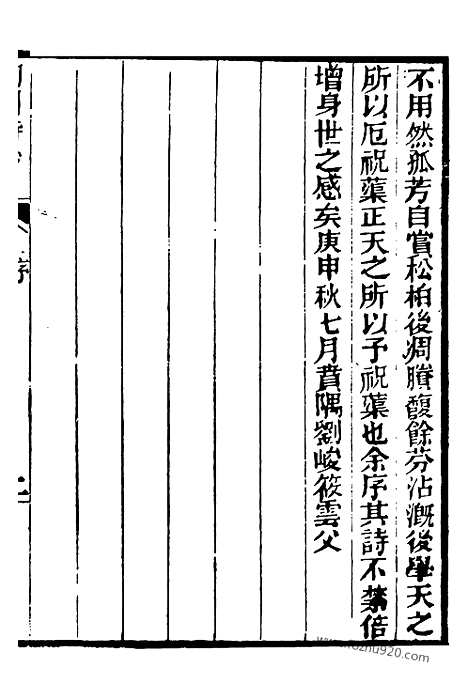 不用然孤芳自賞松柏後凋賸馥餘芬沾溉後學天之
所以厄祝蕖正天之所以予祝蕖也余序其詩不禁倍
增身世之感矣庚申秋七月賁隅劉峻筱雲父
序
二
www.fozhu920.com